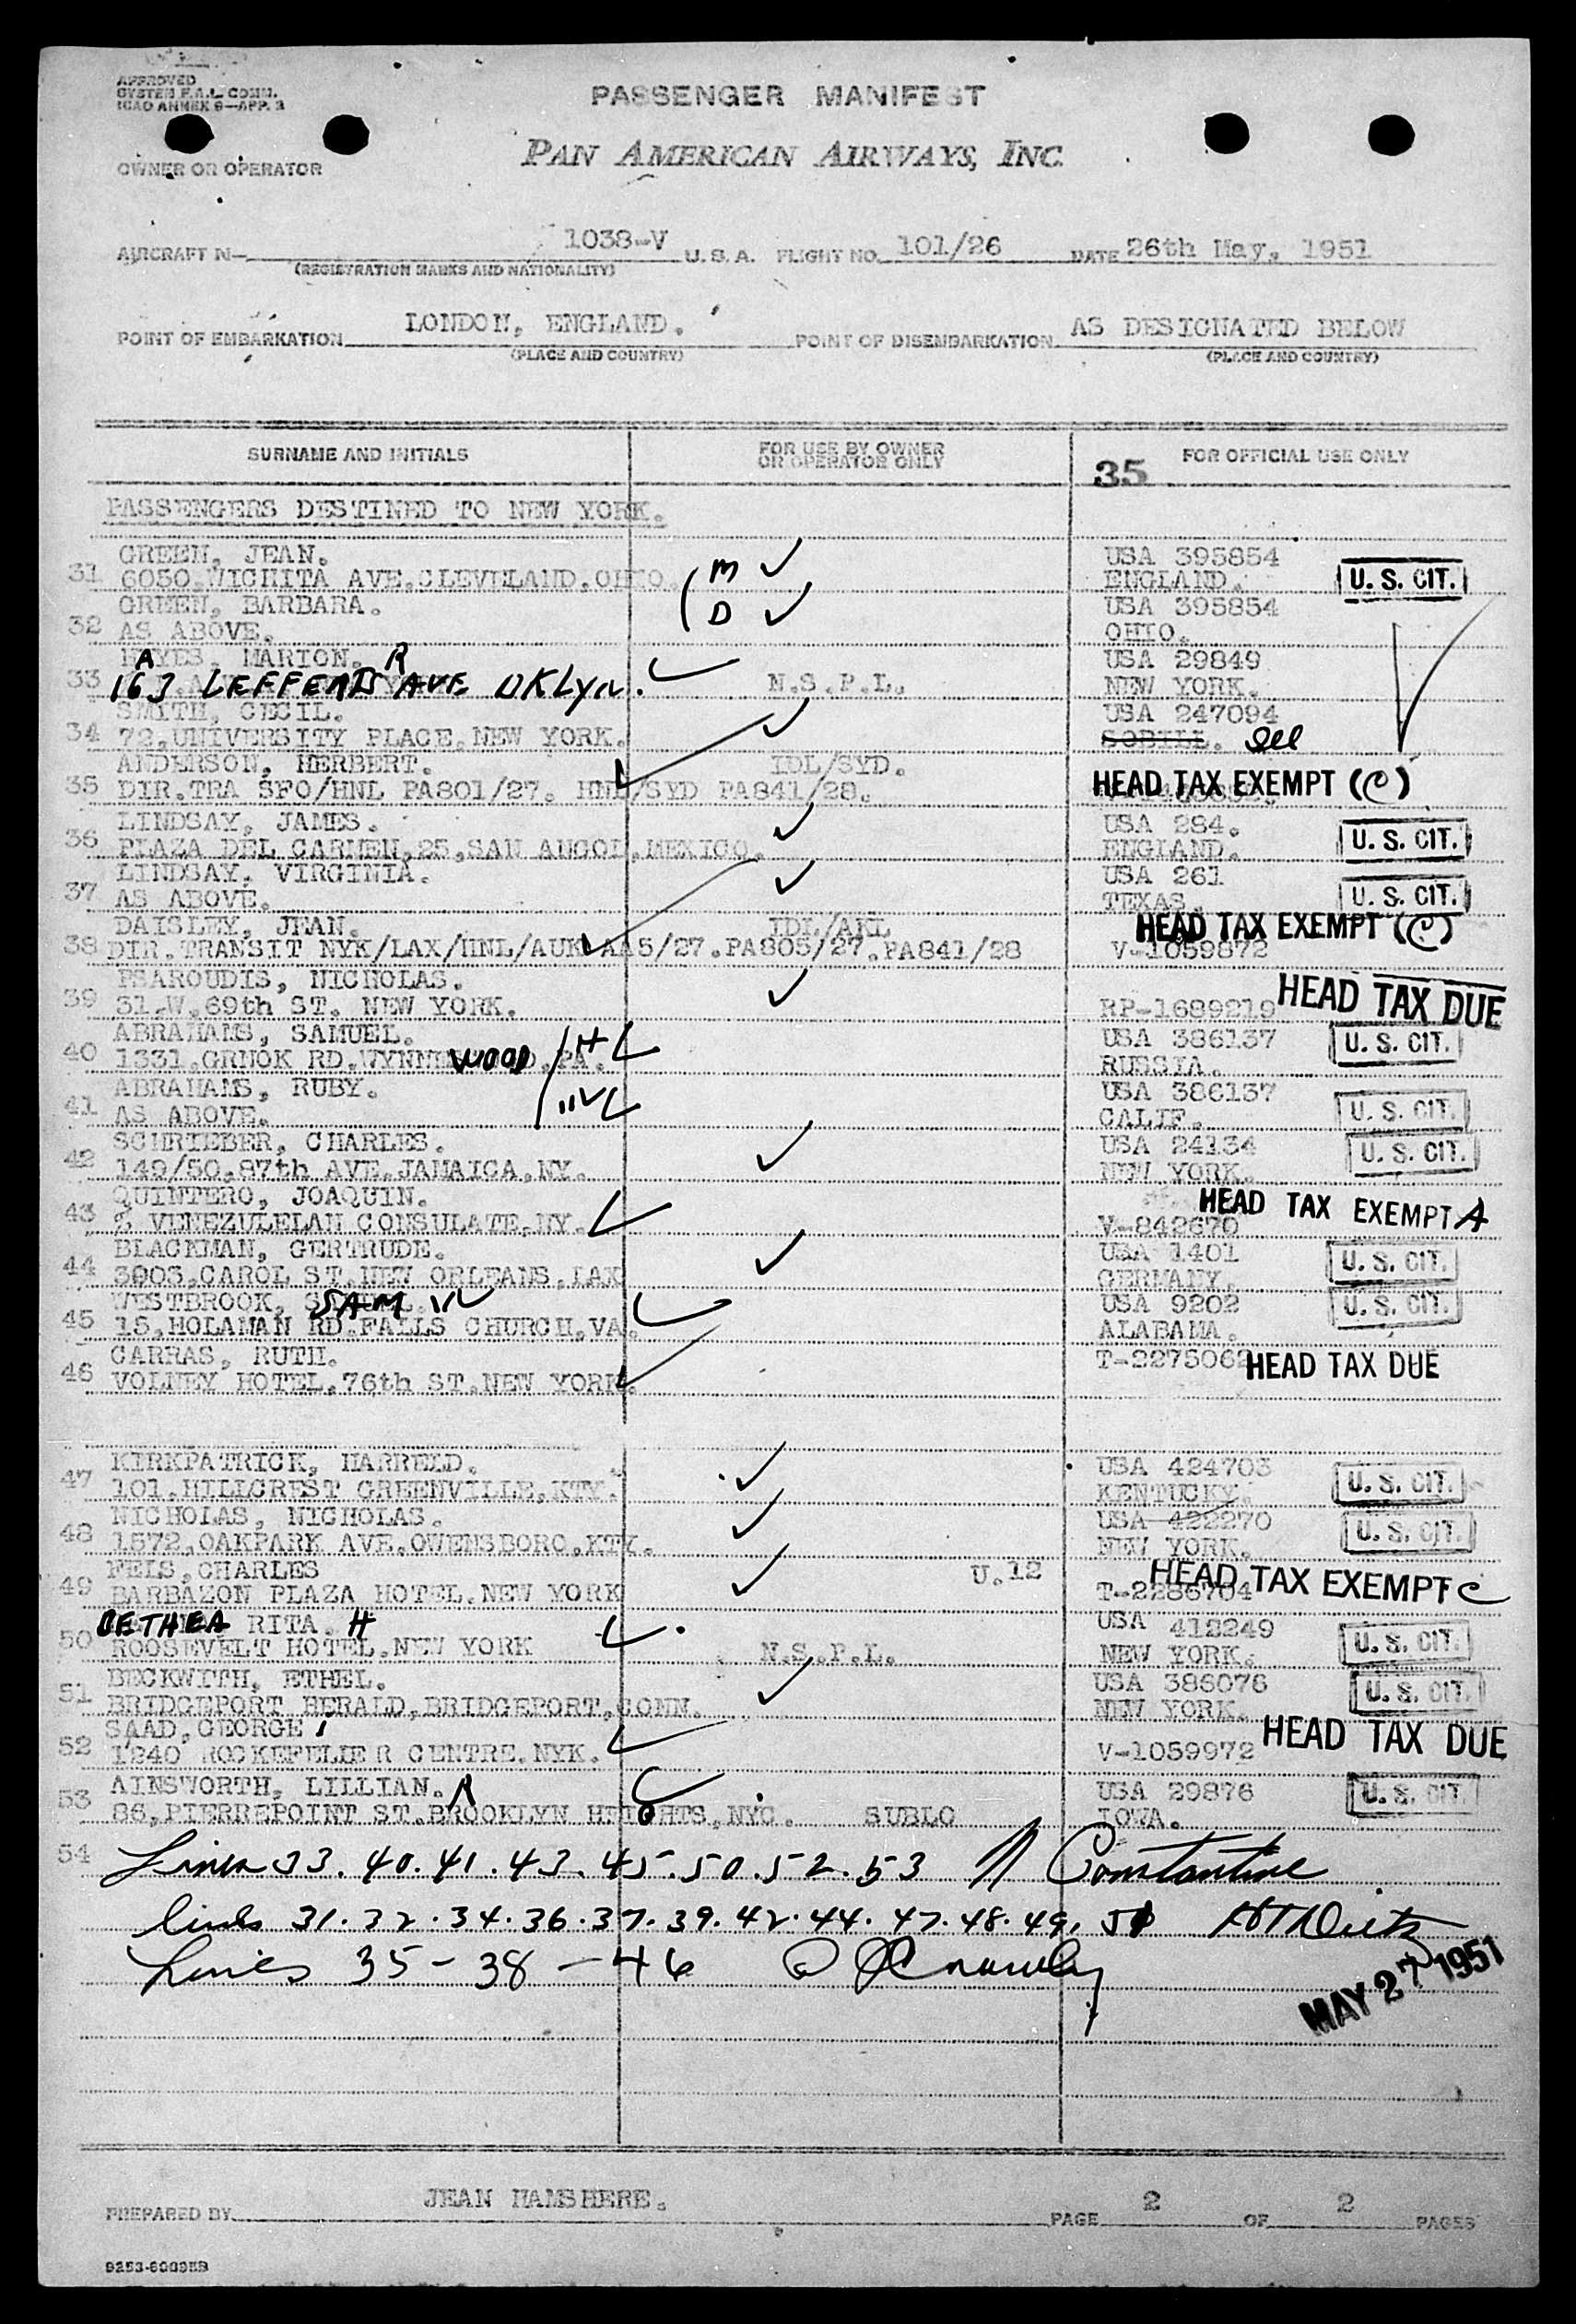 APPROVED
SYSTEM F.A.L. COMM.
ICAO ANNEX 9—APP. 3
PASSENGER MANIFEST
PAN AMERICAN AIRWAYS, INC.
OWNER OR OPERATOR
AIRCRAFT N— 1038-V U. S. A. FLIGHT NO. 101/26 DATE 26th May, 1951
(REGISTRATION MARKS AND NATIONALITY)
POINT OF EMBARKATION LONDON, ENGLAND. POINT OF DISEMBARKATION AS DESIGNATED BELOW
(PLACE AND COUNTRY) (PLACE AND COUNTRY)
SURNAME AND INITIALS FOR USE BY OWNER OR OPERATOR ONLY 35 FOR OFFICIAL USE ONLY
PASSENGERS DESTINED TO NEW YORK.
GREEN, JEAN. M ✓ USA 395854
31 6050.WICHITA AVE.CLEVELAND.OHIO. ENGLAND. U. S. CIT.
GREEN, BARBARA. D ✓ USA 395854
32 AS ABOVE. OHIO.
HAYES, MARION. R USA 29849
33 163 LEFFERTS AVE BKLyn. N.S.P.L. NEW YORK.
SMITH, CECIL. USA 247094
34 72,UNIVERSITY PLACE.NEW YORK.
ANDERSON, HERBERT. IDL/SYD.
35 DIR.TRA SFO/HNL PA801/27. HNL/SYD PA841/28. HEAD TAX EXEMPT (C)
LINDSAY, JAMES. USA 284.
36 PLAZA DEL CARMEN,25,SAN ANGOL,MEXICO. ENGLAND. U. S. CIT.
LINDSAY, VIRGINIA. USA 261
37 AS ABOVE. TEXAS. U. S. CIT.
DAISLEY, JEAN. IDL/AKL HEAD TAX EXEMPT (C)
38 DIR.TRANSIT NYK/LAX/HNL/AUK AA5/27.PA805/27.PA841/28 V-1059872
PSAROUDIS, NICHOLAS.
39 31.W.69th ST. NEW YORK. RP-1689219 HEAD TAX DUE
ABRAHAMS, SAMUEL. H USA 386137
40 1331.GRNOK RD.WYNNEWOOD.PA. RUSSIA. U. S. CIT.
ABRAHAMS, RUBY. USA 386137
41 AS ABOVE. CALIF. U. S. CIT.
SCHRIEBER, CHARLES. USA 24134
42 149/50,87th AVE.JAMAICA,NY. NEW YORK. U. S. CIT.
QUINTERO, JOAQUIN. HEAD TAX EXEMPT A
43 % VENEZULELAN CONSULATE,NY. V-842670
BLACKMAN, GERTRUDE. USA 1401
44 3903,CAROL ST.NEW ORLEANS.LAK GERMANY. U. S. CIT.
WESTBROOK, SAM USA 9202
45 15,HOLAMAN RD.FALLS CHURCH,VA. ALABAMA. U. S. CIT.
CARRAS, RUTH. T-2275062 HEAD TAX DUE
46 VOLNEY HOTEL.76th ST.NEW YORK.
KIRKPATRICK, HARRELD. USA 424703
47 101.HILLCREST GREENVILLE,KTY. KENTUCKY. U. S. CIT.
NICHOLAS, NICHOLAS. USA 422270
48 1572,OAKPARK AVE.OWENSBORO.KTY. NEW YORK. U. S. CIT.
FELS,CHARLES U.12
49 BARBAZON PLAZA HOTEL.NEW YORK T-2286704 HEAD TAX EXEMPT C
BETHEA RITA. H USA 412249
50 ROOSEVELT HOTEL.NEW YORK N.S.P.L. NEW YORK. U. S. CIT.
BECKWITH, ETHEL. USA 386076
51 BRIDGEPORT HERALD,BRIDGEPORT,CONN. NEW YORK. U. S. CIT.
SAAD,GEORGE
52 1240 ROCKEFELLER CENTRE.NYK. V-1059972 HEAD TAX DUE
AINSWORTH, LILLIAN. USA 29876
53 86,PIERREPOINT ST.BROOKLYN HEIGHTS,NYC. SUBLO IOWA. U. S. CIT.
54 Lines 33. 40. 41. 43. 45. 50. 52. 53 Constantine
lines 31. 32. 34. 36. 37. 39. 42. 44. 47. 48. 49. 51
Lines 35 - 38 - 46
MAY 27 1951
PREPARED BY JEAN HAMSHERE. PAGE 2 OF 2 PAGES